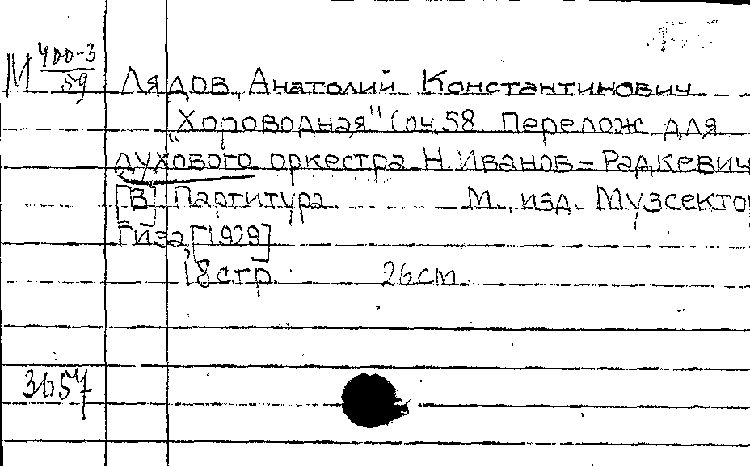 М 400-3
59
Лядов, Анатолий Константинович
"Хороводная" (оч. 58 Перелож для
духового оркестра Н. Иванов-Радкевич
[В] Партитура М., изд. Музсекто
Гиза, [1929]
18 стр. 26 cm
3657